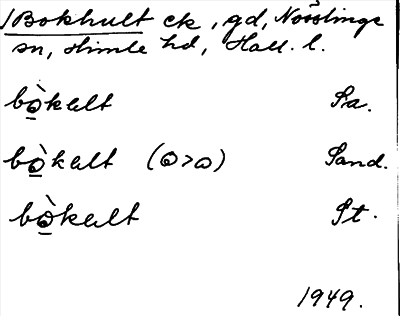 /Bokhult ck, gd, Nösslinge
sn, Himle hd, Hall. l.
bò̲kalt Sa.
bò̲kalt (ɷ>o) Sand.
bò̲kalt St.
1949.